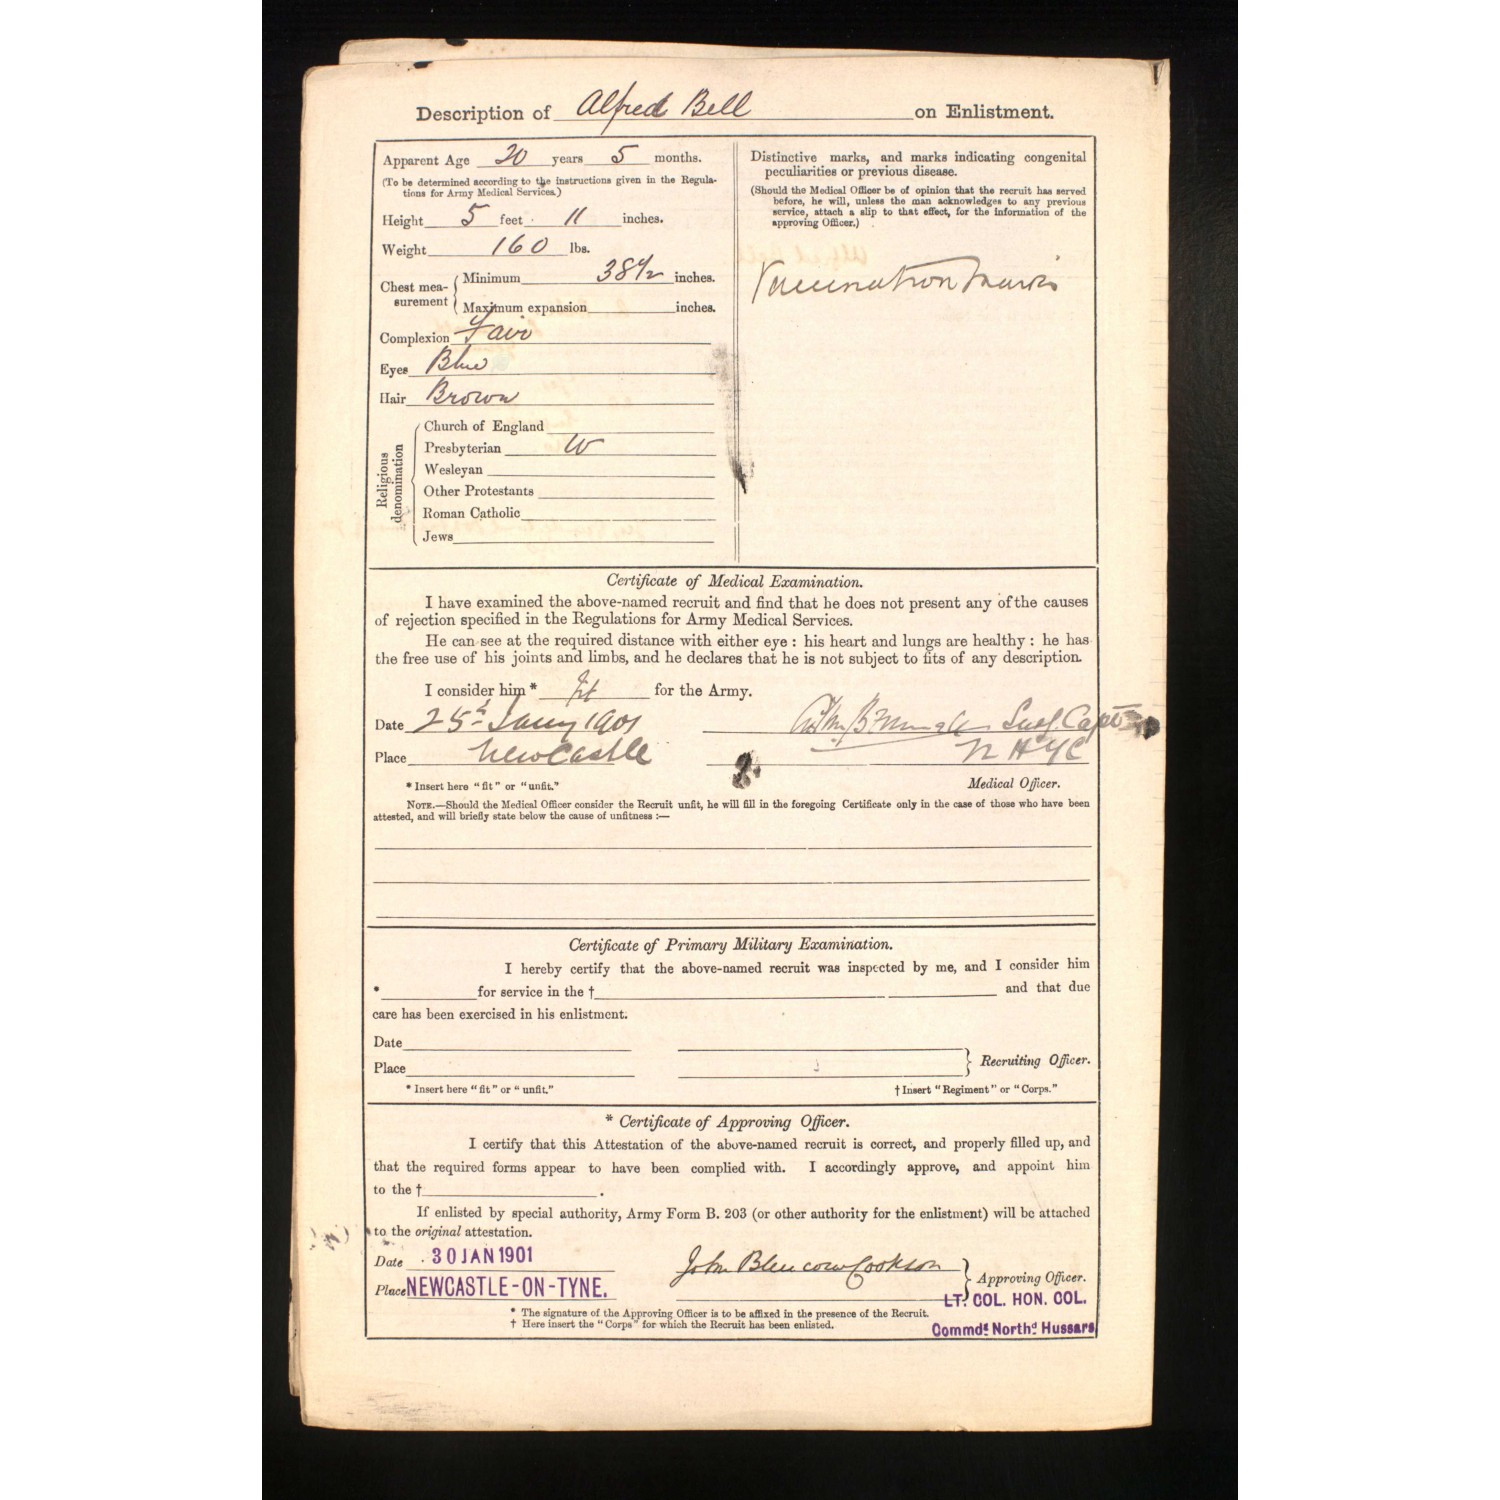 Description of Alfred Bell on Enlistment.
Apparent Age 20 years 5 months.
(To be determined according to the instructions given in the Regula-
tions for Army Medical Services.)
Height 5 feet 11 inches.
Weight 160 lbs.
Chest mea-
surement
Minimum 38½ inches.
Maximum expansion inches.
Complexion Fair
Eyes Blue
Hair Brown
Religious
denomination
Church of England
Presbyterian W
Wesleyan
Other Protestants
Roman Catholic
Jews
Distinctive marks, and marks indicating congenital
peculiarities or previous disease.
(Should the Medical Officer be of opinion that the recruit has served
before, he will, unless the man acknowledges to any previous
service, attach a slip to that effect, for the information of the
approving Officer.)
Vaccination Marks
Certificate of Medical Examination.
I have examined the above-named recruit and find that he does not present any of the causes
of rejection specified in the Regulations for Army Medical Services.
He can see at the required distance with either eye : his heart and lungs are healthy : he has
the free use of his joints and limbs, and he declares that he is not subject to fits of any description.
I consider him * fit for the Army.
Date 25th Jany 1901
Surg. Capt
Place Newcastle
N H Y C
* Insert here "fit" or "unfit."
Medical Officer.
NOTE.—Should the Medical Officer consider the Recruit unfit, he will fill in the foregoing Certificate only in the case of those who have been
attested, and will briefly state below the cause of unfitness :—
Certificate of Primary Military Examination.
I hereby certify that the above-named recruit was inspected by me, and I consider him
* for service in the † and that due
care has been exercised in his enlistment.
Date
Place
Recruiting Officer.
* Insert here "fit" or "unfit."
† Insert "Regiment" or "Corps."
* Certificate of Approving Officer.
I certify that this Attestation of the above-named recruit is correct, and properly filled up, and
that the required forms appear to have been complied with. I accordingly approve, and appoint him
to the † .
If enlisted by special authority, Army Form B. 203 (or other authority for the enlistment) will be attached
to the original attestation.
Date 30 JAN 1901
John Blencowe Cookson
Place NEWCASTLE-ON-TYNE.
Approving Officer.
LT. COL. HON. COL.
Commdg Northd Hussars
* The signature of the Approving Officer is to be affixed in the presence of the Recruit.
† Here insert the "Corps" for which the Recruit has been enlisted.